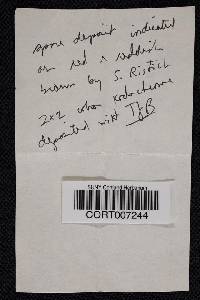 spore deposit indicated
as red & reddish
brown by S. Ristich
2x2 color kodachrome
deposited with TJB
SUNY Cortland Herbarium
CORT007244